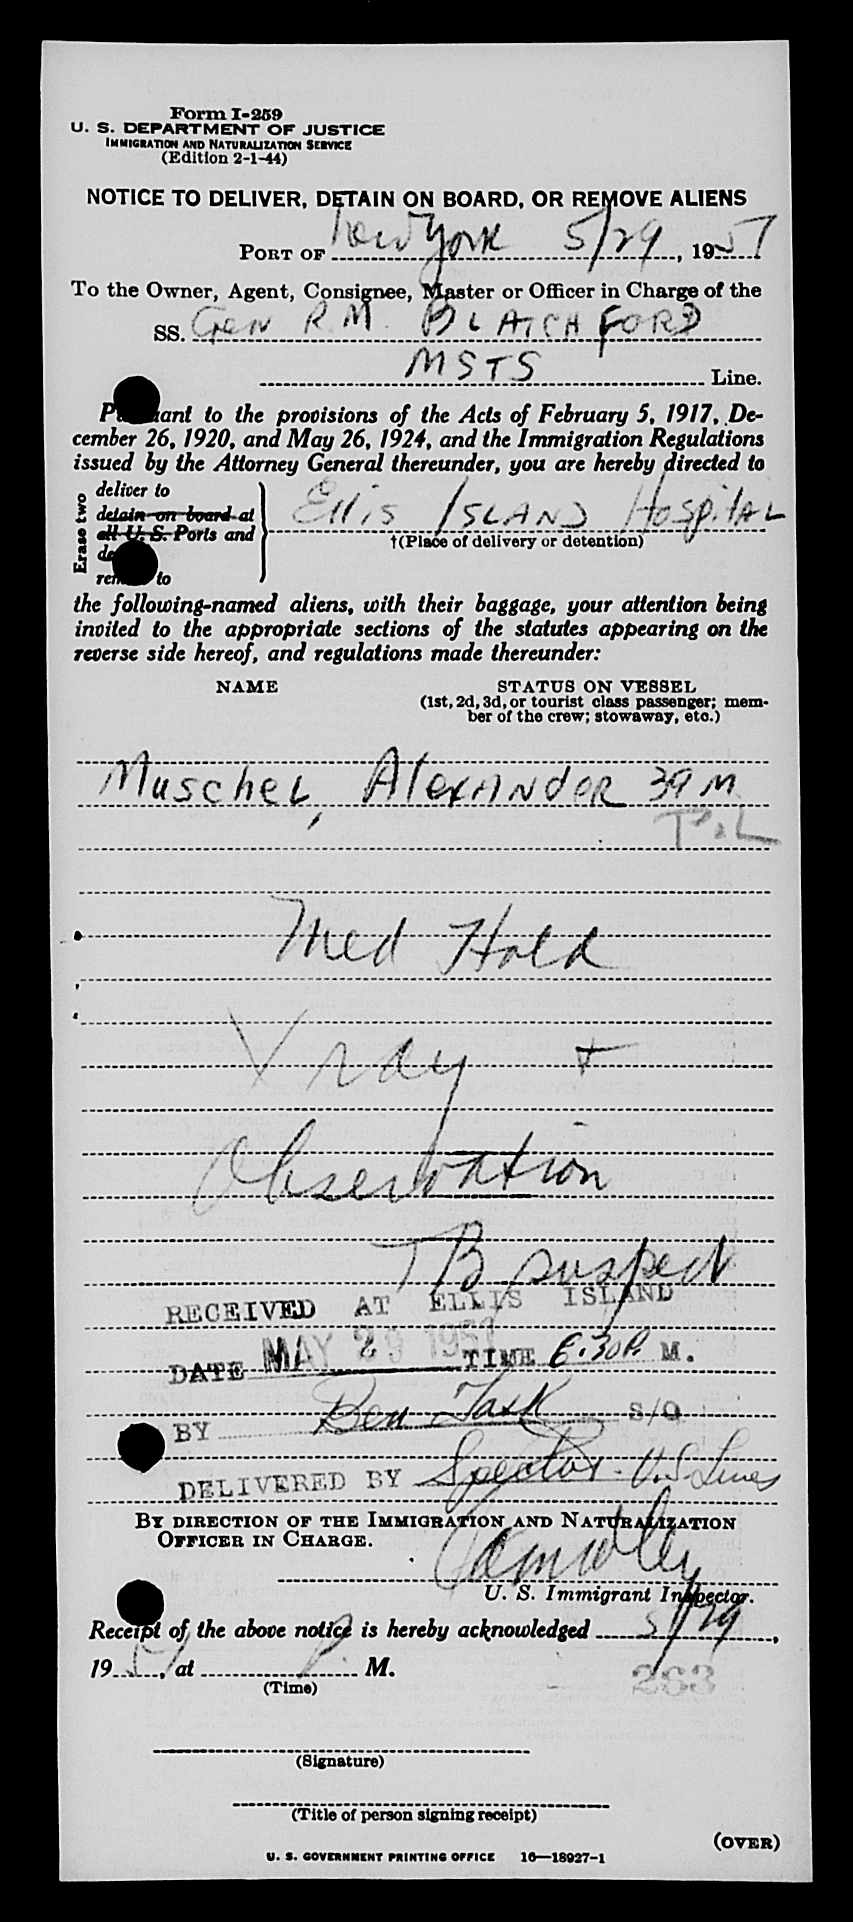 Form I-259
U. S. DEPARTMENT OF JUSTICE
IMMIGRATION AND NATURALIZATION SERVICE
(Edition 2-1-44)
NOTICE TO DELIVER, DETAIN ON BOARD, OR REMOVE ALIENS
PORT OF New York 5/29, 1951
To the Owner, Agent, Consignee, Master or Officer in Charge of the
SS. Gen R.M. BLATCHFORD
MSTS Line.
Pursuant to the provisions of the Acts of February 5, 1917, De-
cember 26, 1920, and May 26, 1924, and the Immigration Regulations
issued by the Attorney General thereunder, you are hereby directed to
Erase two
deliver to
detain on board at
all U. S. Ports and
remove to
Ellis ISLAND Hospital
†(Place of delivery or detention)
the following-named aliens, with their baggage, your attention being
invited to the appropriate sections of the statutes appearing on the
reverse side hereof, and regulations made thereunder:
NAME STATUS ON VESSEL
(1st, 2d, 3d, or tourist class passenger; mem-
ber of the crew; stowaway, etc.)
Muschel, Alexander 39 M
Pol
Med Hold
X ray +
Observation
TB suspect
RECEIVED AT ELLIS ISLAND
DATE MAY 29 1951 TIME 6:30 P. M.
BY Ben Task S/O
DELIVERED BY Spector. U.S Lines
BY DIRECTION OF THE IMMIGRATION AND NATURALIZATION
OFFICER IN CHARGE.
U. S. Immigrant Inspector.
Receipt of the above notice is hereby acknowledged 5/29,
1951, at P. M.
(Time)
263
(Signature)
(Title of person signing receipt)
(OVER)
U. S. GOVERNMENT PRINTING OFFICE 16—18927-1